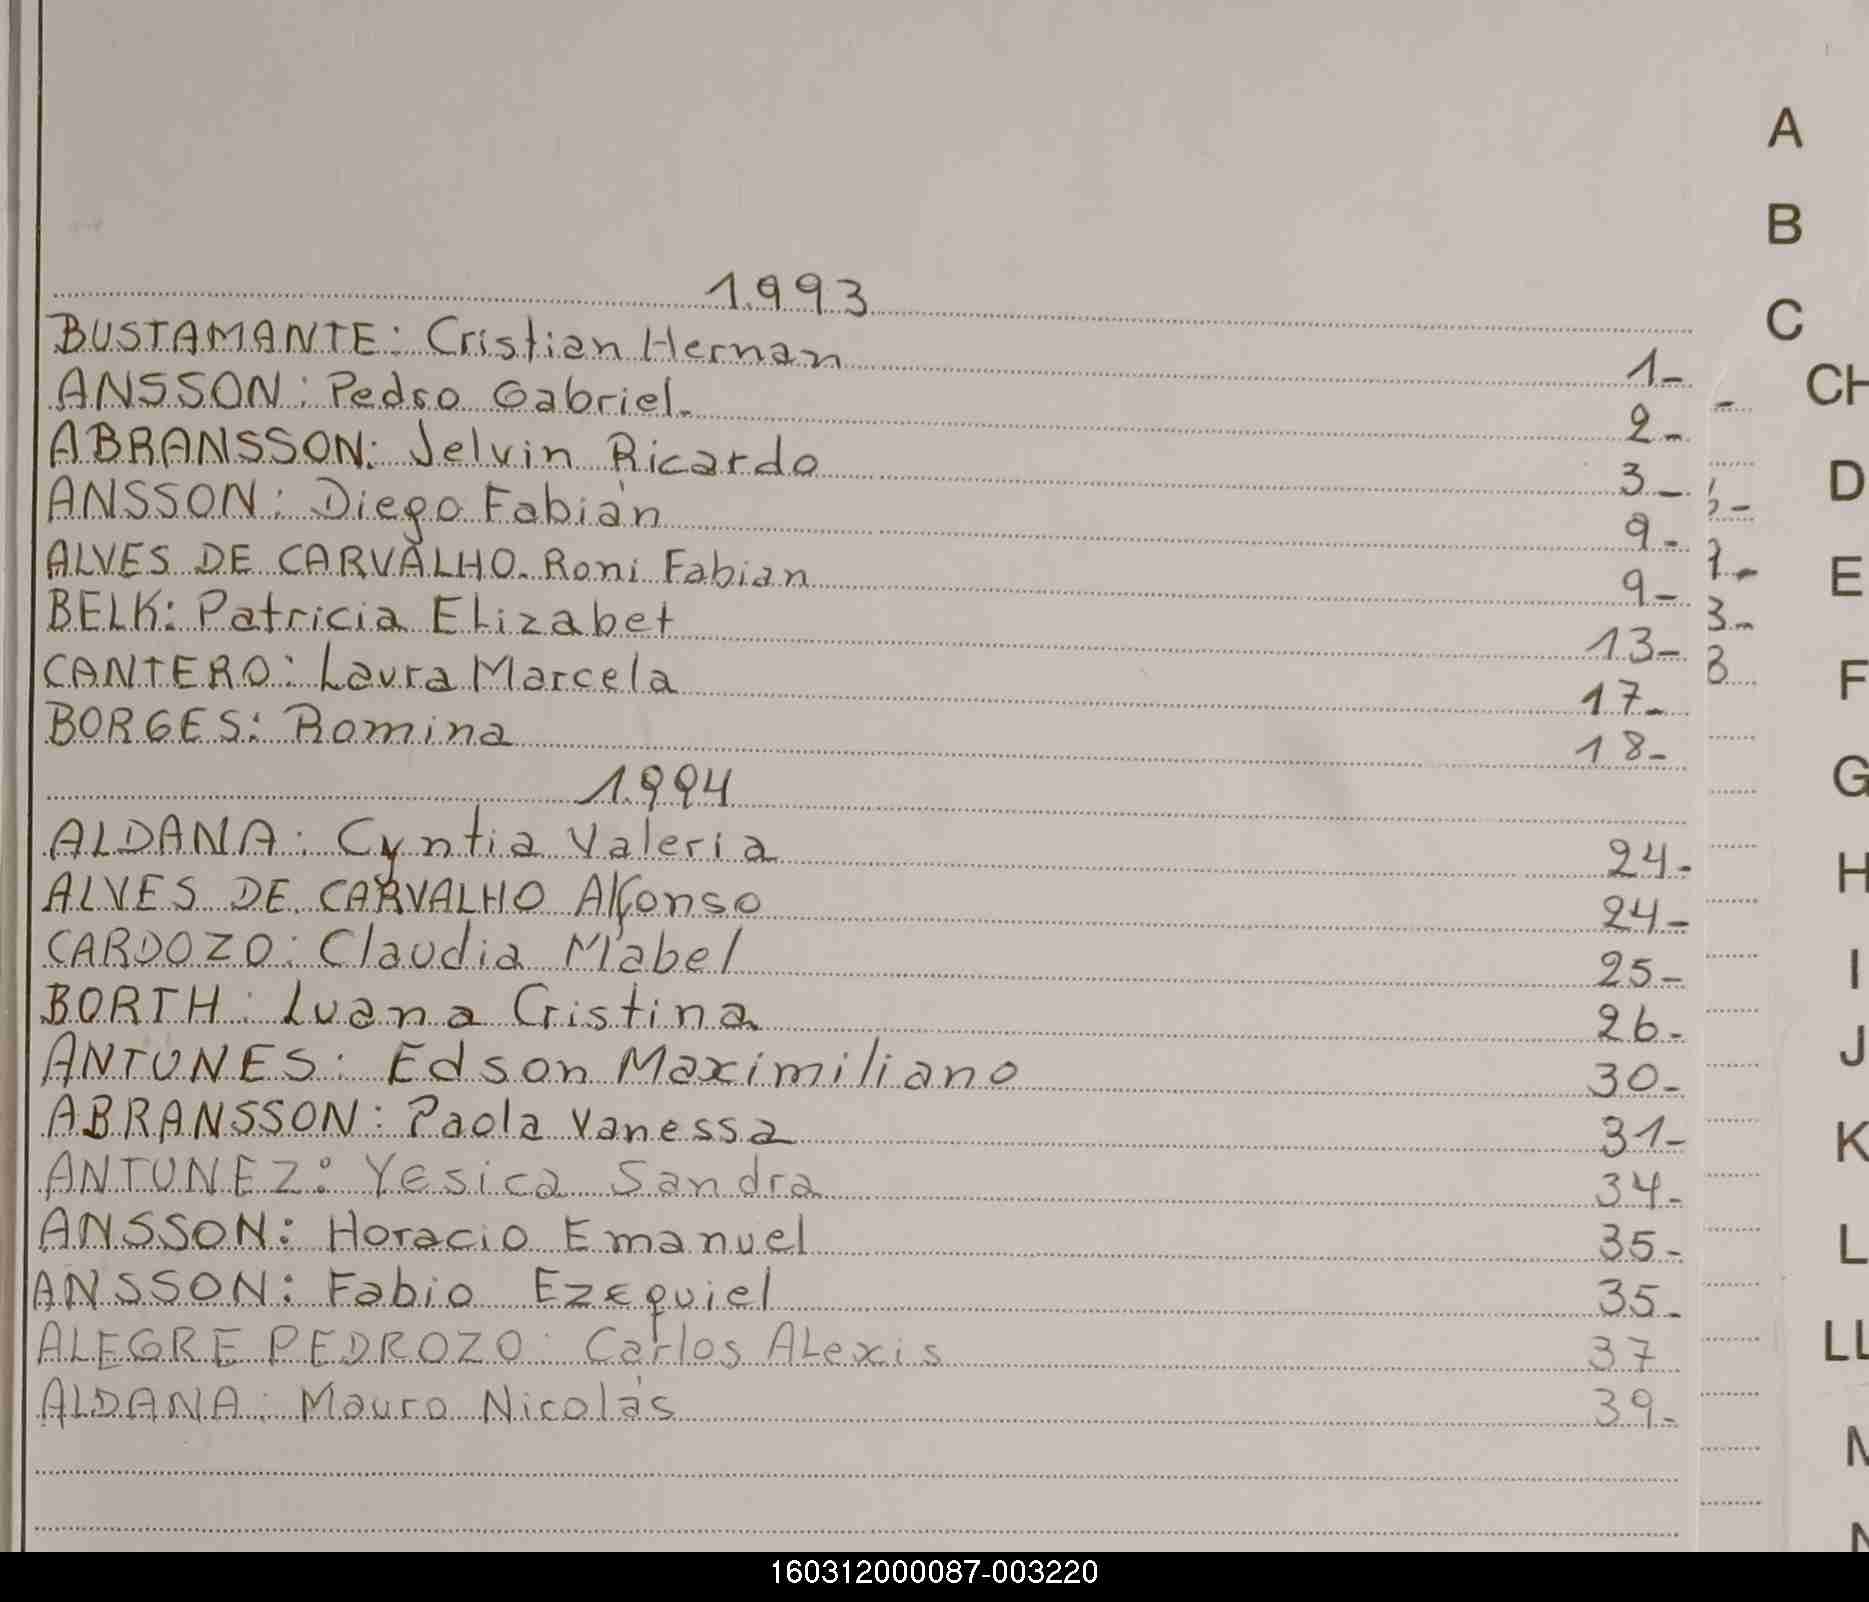 1.993
BUSTAMANTE: Cristian Hernan 1-
ANSSON: Pedro Gabriel. 2-
ABRANSSON: Jelvin Ricardo 3-
ANSSON: Diego Fabián 9-
ALVES DE CARVALHO. Roni Fabian 9-
BELK: Patricia Elizabet 13-
CANTERO: Laura Marcela 17-
BORGES: Romina 18-
1.994
ALDANA: Cyntia Valeria 24-
ALVES DE CARVALHO Alfonso 24-
CARDOZO: Claudia Mabel 25-
BORTH: Luana Cristina 26-
ANTUNES: Edson Maximiliano 30-
ABRANSSON: Paola Vanessa 31-
ANTUNEZ: Yesica Sandra 34-
ANSSON: Horacio Emanuel 35-
ANSSON: Fabio Ezequiel 35-
ALEGRE PEDROZO: Carlos ALexis 37
ALDANA: Mauro Nicolás 39-
A
B
C
CH
D
E
F
G
H
I
J
K
L
LL
160312000087-003220